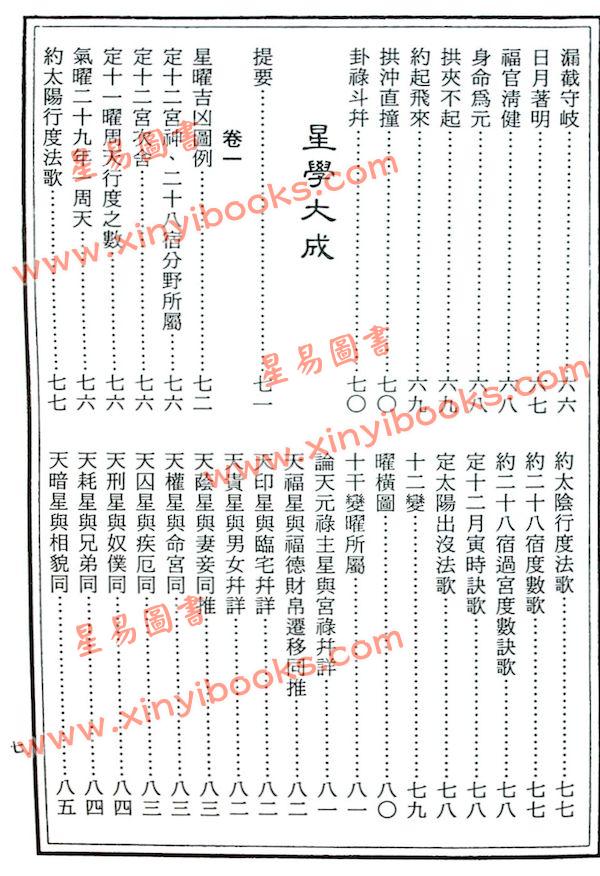 漏截守岐……六六
日月著明……六七
福官淸健……六八
身命爲元……六八
拱夾不起……六九
約起飛來……六九
拱沖直撞……七〇
卦祿斗幷……七〇
星學大成
提要……七一
卷一
星曜吉凶圖例……七二
定十二宮神、二十八宿分野所屬……七六
定十二宮次舍……七六
定十一曜周天行度之數……七六
氣曜二十九年一周天……七六
約太陽行度法歌……七七
約太陰行度法歌……七七
約二十八宿度數歌……七七
約二十八宿過宮度數訣歌……七八
定十二月寅時訣歌……七八
定太陽出沒法歌……七八
十二變……七九
曜橫圖……八〇
十干變曜所屬……八一
論天元祿主星與宮祿幷詳……八一
天福星與福德財帛遷移同推……八二
天印星與臨宅幷詳……八二
天貴星與男女幷詳……八二
天蔭星與妻妾同推……八三
天權星與命宮同……八三
天囚星與疾厄同……八三
天刑星與奴僕同……八四
天耗星與兄弟同……八四
天暗星與相貌同……八五
七
星易圖書
www.xinyibooks.com
星易圖書
www.xinyibooks.com
星易圖書
www.xinyibooks.com